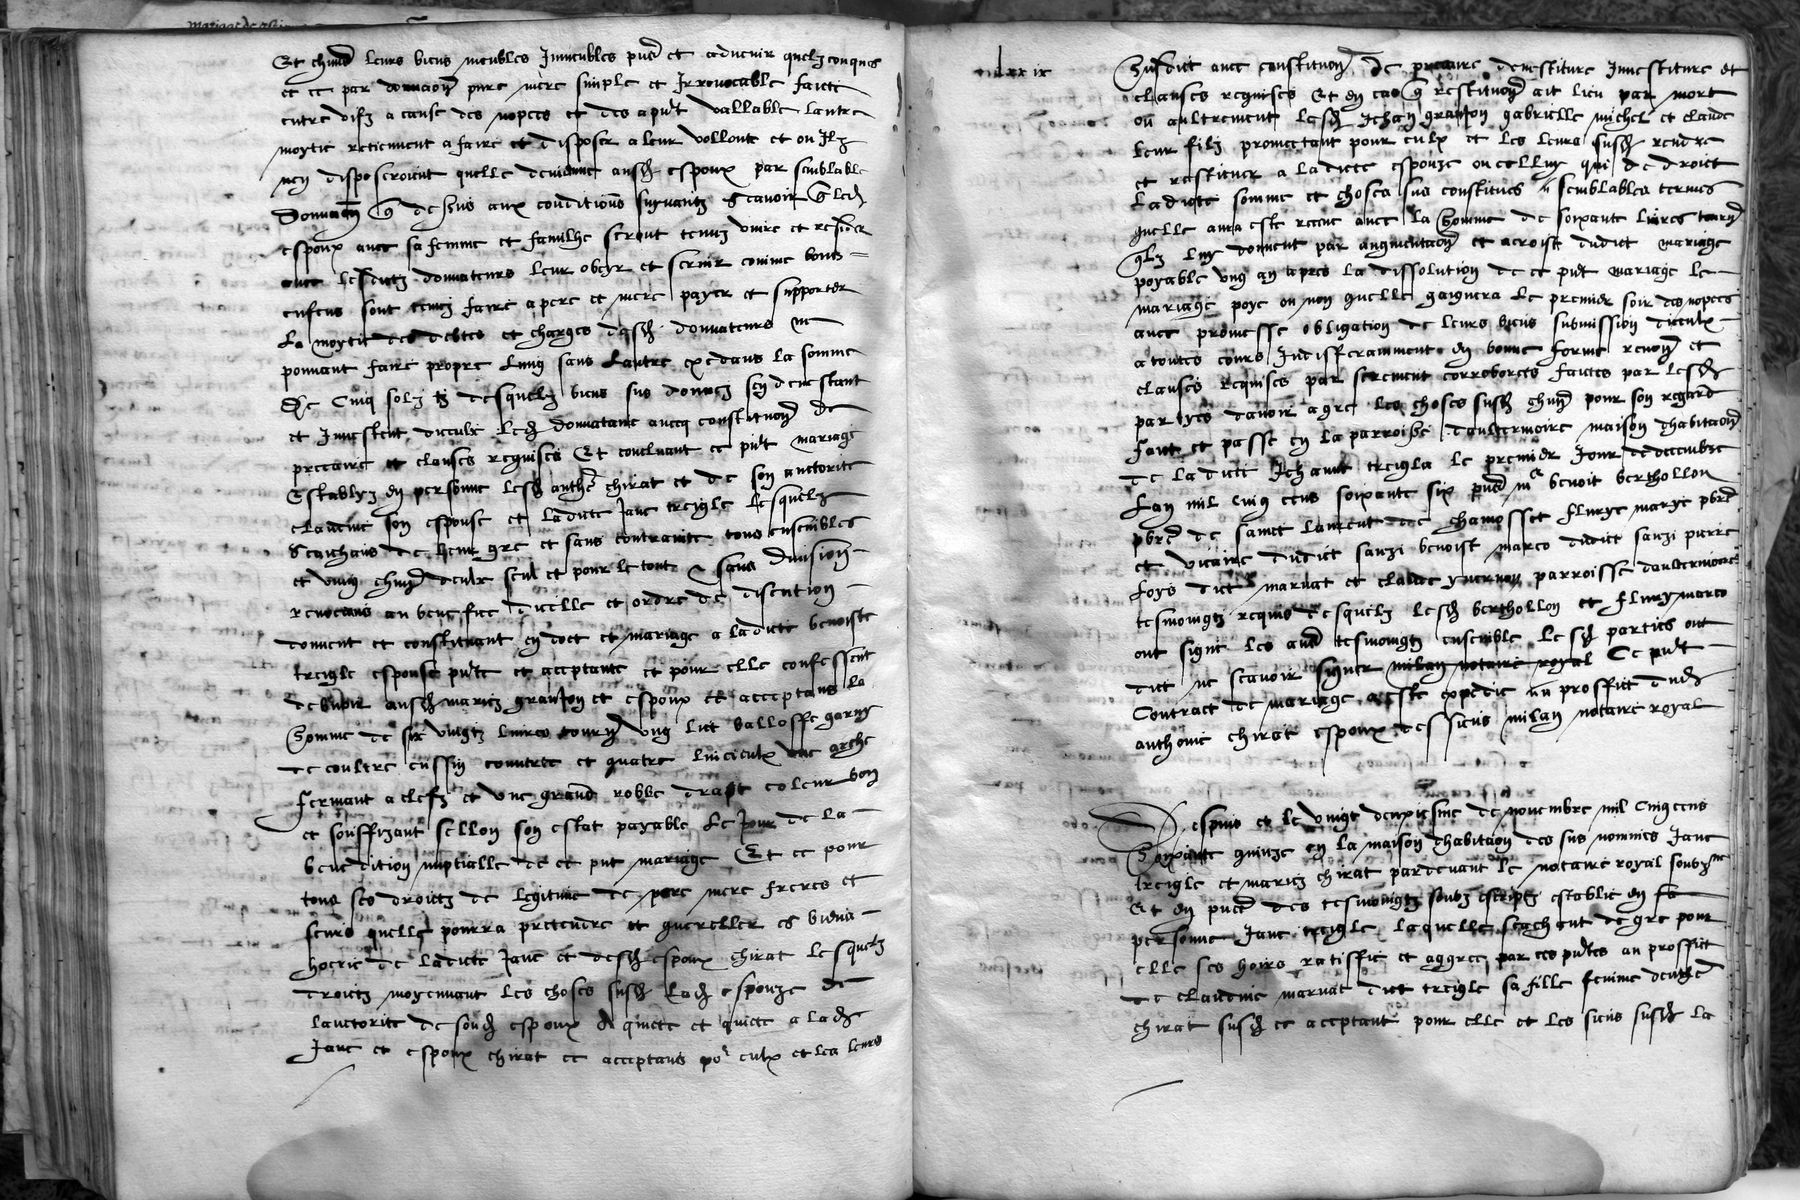 Et chund leurs biens meubles Immeubles pnts et advenir quelzconques
et ce par donnaon pure mere simple et Irrevocable faicte
entre vifz a cause des nopces et des apnt vallable lautre
moytie retiennent a faire et disposer a leur vollonte et ou Ilz
nen disposeroient quelle devienne ausd espoux par semblable
Donnaon q dessus aux conditions suyvantz Scavoir q led
espoux avec sa femme et familhe seront tenuz vivre et resider
avec lesdictz donnateurs leur obeyr et servir comme bons
enfens sont tenuz faire a pere et mere payer et supporter
La moytie des debtes et charges desd donnateurs ne
pouvant faire propre lung sans lautre exedans la somme
De Cinq solz tz desquelz biens sus donnez sen devestant
et Investent diceulx led donnataire avecq constitution de
precaire et clauses requises Et concluant ce pnt mariage
Establyz en personne lesd anthe chirat et de son auctorite
claudine son espouse et ladicte Jane treigle lesquelz
Scachans de leur gre et sans contrainte tous ensembles
et ung chund deulx seul et pour le tout sans division
renoceans au benefice dicelle et ordre de discution
donnent et constituent en doct et mariage a ladicte benoiste
treigle espouse pnte et acceptante et pour elle confessent
debvoir ausd mariez granjon et espoux et acceptans la
Somme de six vingtz livres tournz ung lict ballosffe garny
de coultre cussin couverte et quatre linceulx une arche
fermant a clefz et une grand robbe drapt coleur bon
et souffizant sellon son estat payable le jour de la
benediction nuptialle de ce pnt mariage Et ce pour
tous ses droictz de legitime de pere mere freres et
seurs quelle pourra pretendre et quereller es biens
hoerie de ladicte Jane et desd espoux chirat lesquelz
droictz moyennant les choses susd lad espouze de
lauctorite de soud espoux a quicte et quicte a lad
Jane et espoux chirat ce acceptans por eulx et les leurs
lxxix
Susdict avec constitution de precaire devestiture Investiture et
clauses requises Et en cas q restitution ait lieu par mort
ou aultrement lesd Jehan granjon gabrielle michel et claude
leur filz promectant pour eulx et les leurs susd rendre
et restituer a ladicte espouze ou celluy qui de droict
Ladicte somme et choses sus constitues semblables termes
quelle aura este receue avec la Somme de soixante livres tournz
qlz luy donnent par augmentaon et acroist dudict mariage
poyable ung an apres la dissolution de ce pnt mariage le
mariage poye ou non quelle gaignera le premier soir des nopces
avec promesse obligation de leurs biens submission diceulx
a toutes cours Indifferamment en bonne forme renon et
clauses requises par serement corroborees faictes par lesd
partyes davoir agre les choses susd chund pour son regard
faict et passe en la parroisse daultermoire maison dhabitaon
de ladicte Jehanne treigla le premier Jour de decembre
Lan mil cinq cens soixante six pnts me benoit berthollon
pbre de sainct laurent de chamosset flurye marye pbre
et vicaire dudict sanzi benoist marco dudict sanzi pierre
foys dict marnat et claude yvernon parroisse daultermoire
tesmoingtz requis desquelz lesd berthollon et flury marco
ont signe les aud tesmoingtz ensemble le sd parties ont
dict ne scavoir signer milan notaire royal Ce pnt
Contract de mariage a este expedie au proffict dud
anthoine chirat espoux dessiens milan notaire royal
Despuis et le vingt deuxiesme de novembre mil cinq cens
Soixante quinze en la maison dhabitaon des sus nommes Jane
treigle et mariez chirat pardevant le notaire royal soubzne
Et en pnce des tesmoingtz soubz escriptz establie en sa
personne Jane treigle laquelle scachent de gre pour
elle ses hoirs ratiffie et aggree par ces pntes au proffict
de claudine marnat dict treigle sa fille femme dauthe
chirat susd ce acceptant pour elle et les siens susd la